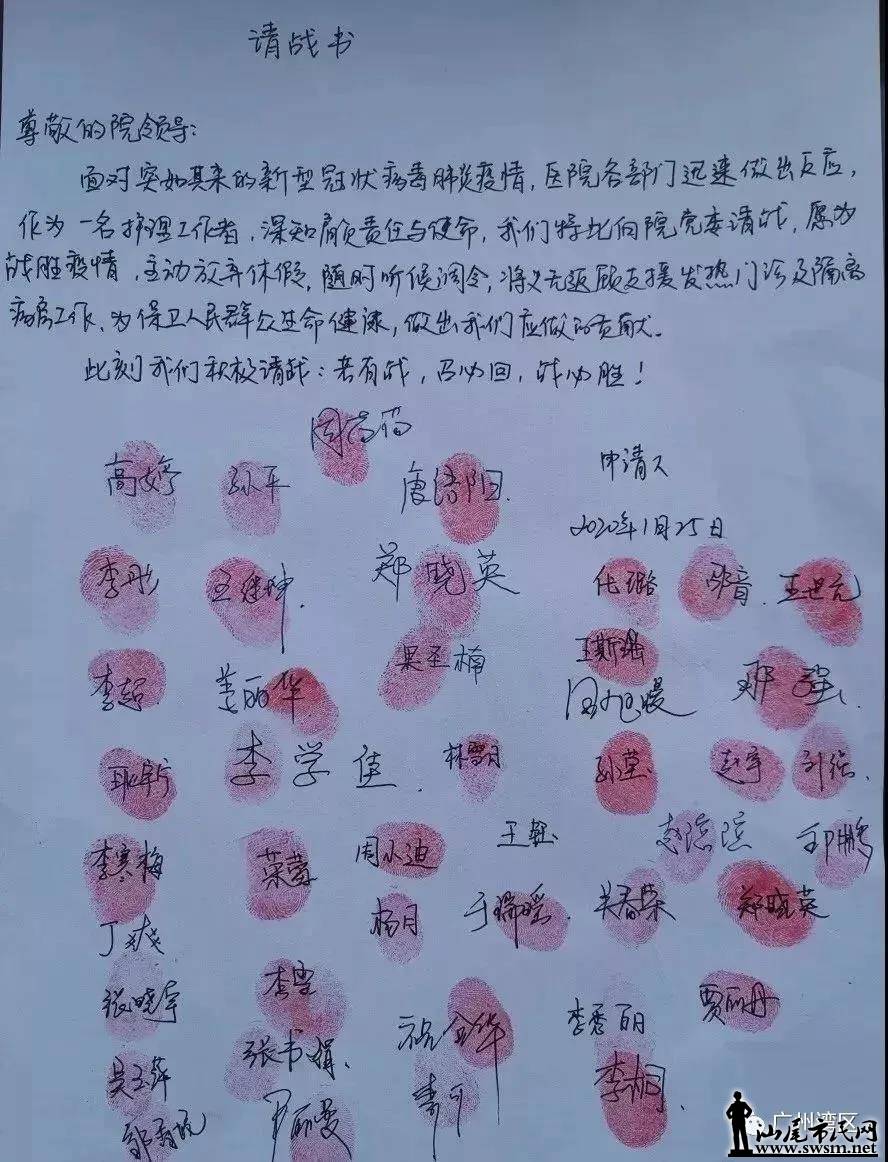 请战书
尊敬的院领导:
面对突如其来的新型冠状病毒肺炎疫情,医院各部门迅速做出反应,
作为一名护理工作者,深知肩负责任与使命,我们特此向院党委请战,愿为
战胜疫情,主动放弃休假,随时听候调令,将义无返顾支援发热门诊及隔离
病房工作、为保卫人民群众生命健康,做出我们应做的贡献。
此刻我们积极请战:若有战,召必回,战必胜!
高婷 孙平
申请人
2020年1月25日
李彤 郑晓英 王世元
李超 姜丽华 王斯瑶
李学佳 林雪月 孙莹 赵宇
李寒梅 周小迪 王钰
杨月 于瑞瑶 关春荣 郑晓英
丁爽
张晓宇 李雪 李秀丽 贾丽丹
吴玉萍 张书娟 李桐
广州湾区
汕尾市民网
www.swsm.net